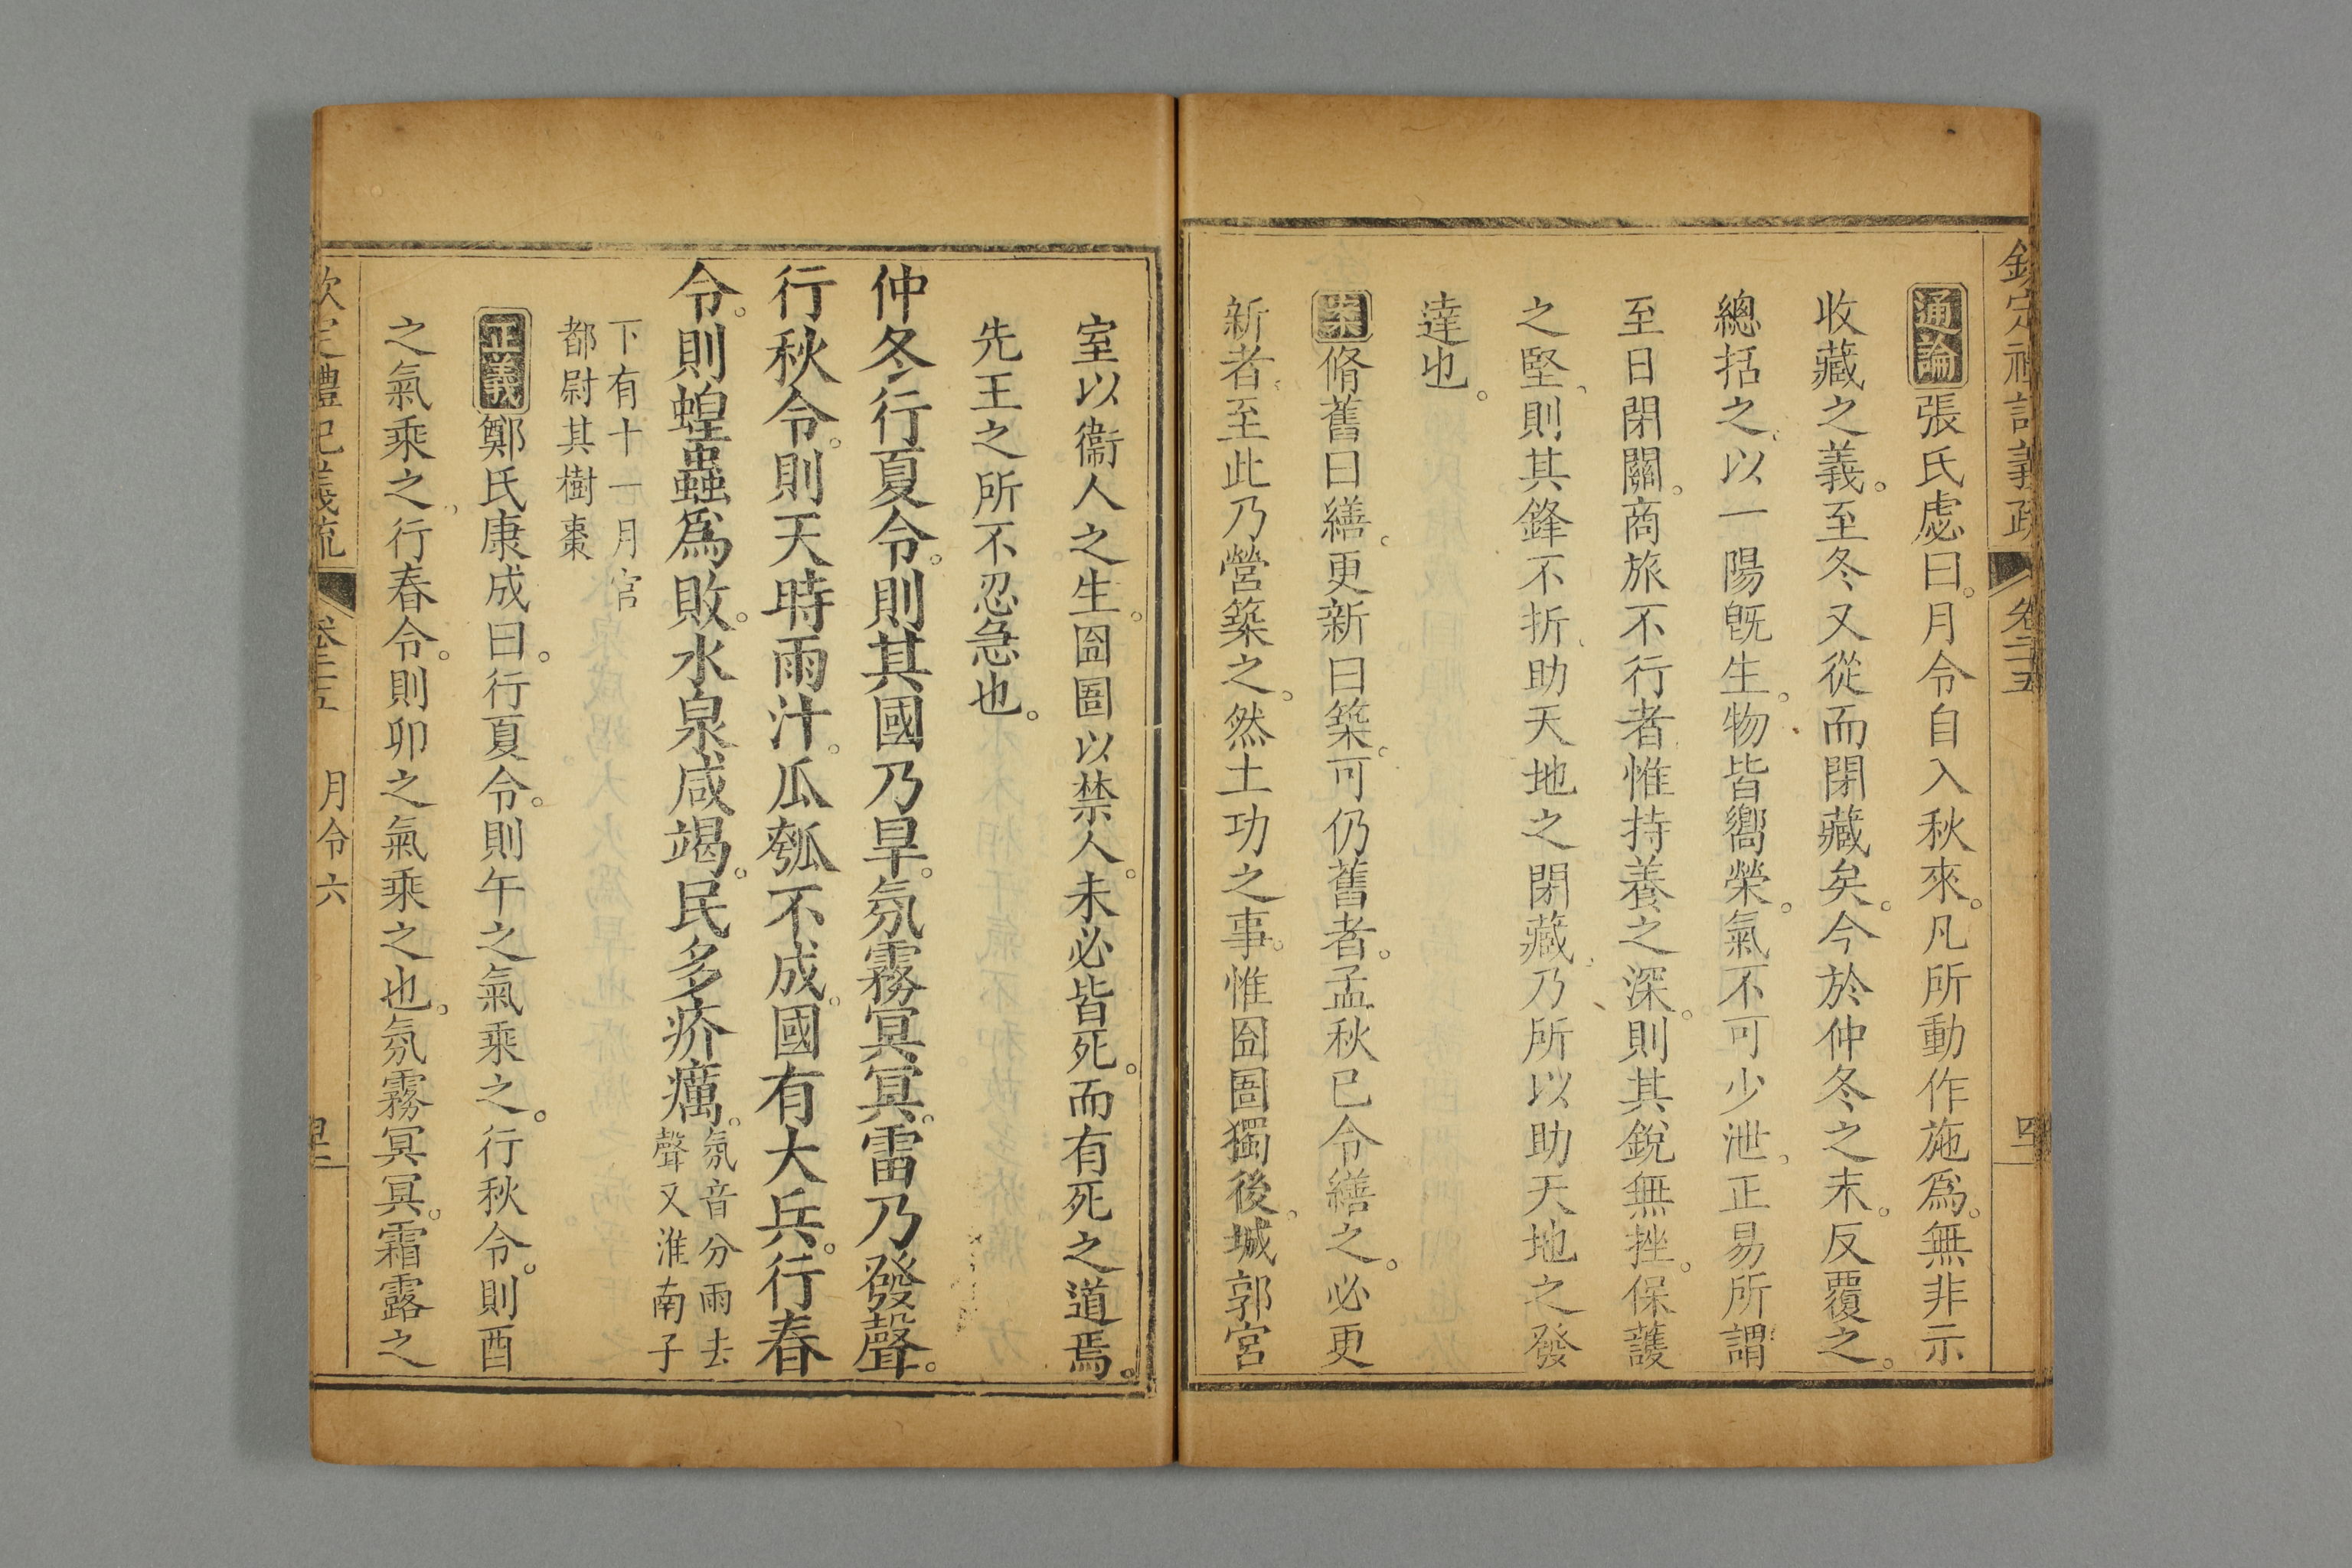 欽定禮記義疏 卷二十五
通論張氏處曰。月令自入秋來。凡所動作施爲。無非示
收藏之義。至冬又從而閉藏矣。今於仲冬之末。反覆之。
總括之、以一陽旣生。物皆嚮榮。氣不可少泄、正易所謂
至日閉關。商旅不行者惟持養之深。則其銳無挫。保護
之堅、則其鋒不折、助天地之閉藏、乃所以助天地之發
達也。
案脩舊曰繕。更新曰築。可仍舊者。孟秋已令繕之。必更
新者、至此乃營築之。然土功之事。惟囹圄獨後。城郭宮
室以衞人之生。囹圄以禁人。未必皆死。而有死之道焉。
先王之所不忍急也。
仲冬行夏令。則其國乃旱。氛霧冥冥。雷乃發聲。
行秋令。則天時雨汁。瓜瓠不成。國有大兵。行春
令。則蝗蟲爲敗。水泉咸竭。民多疥癘。氛音分雨去
聲又淮南子
下有十一月官
都尉其樹棗
正義鄭氏康成曰。行夏令。則午之氣乘之。行秋令。則酉
之氣乘之、行春令。則卯之氣乘之也。氛霧冥冥。霜露之
欽定禮記義疏 卷三十五 月令六